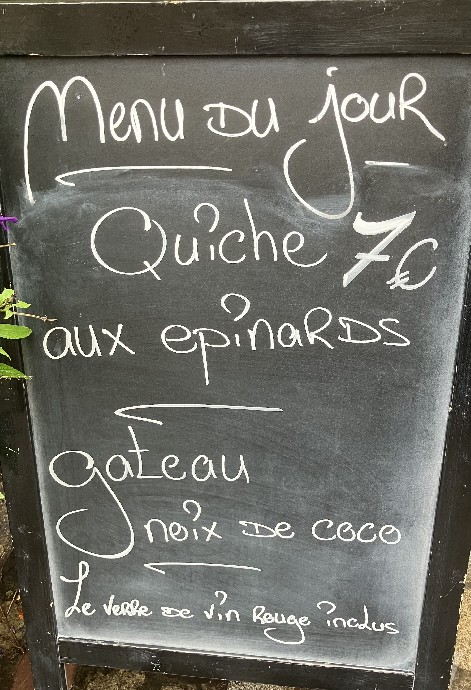 Menu DU jouR
Quiche 7€
aux epinaRDS
gateau
noix DE coco
Le veRRe De vin Rouge incLus